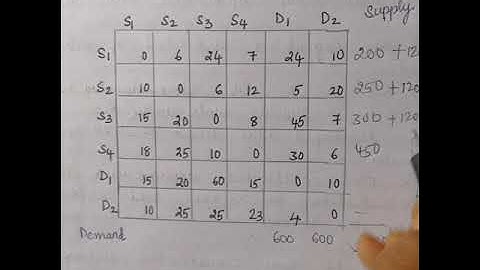 S1 S2 S3 S4 D1 D2 Supply
S1 0 6 24 7 24 10 200 + 120
S2 10 0 6 12 5 20 250 + 120
S3 15 20 0 8 45 7 300 + 120
S4 18 25 10 0 30 6 450
D1 15 20 60 15 0 10
D2 10 25 25 23 4 0 —
Demand 600 600